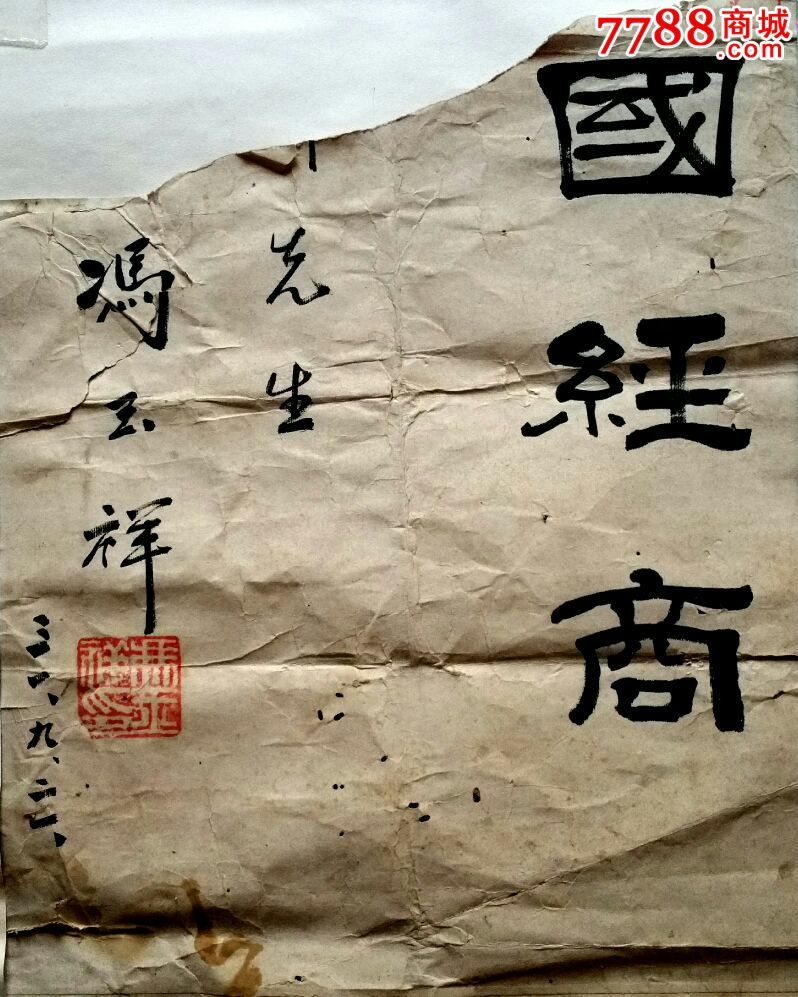 7788商城
.com
國經商
先生
馮玉祥
三六、九、二